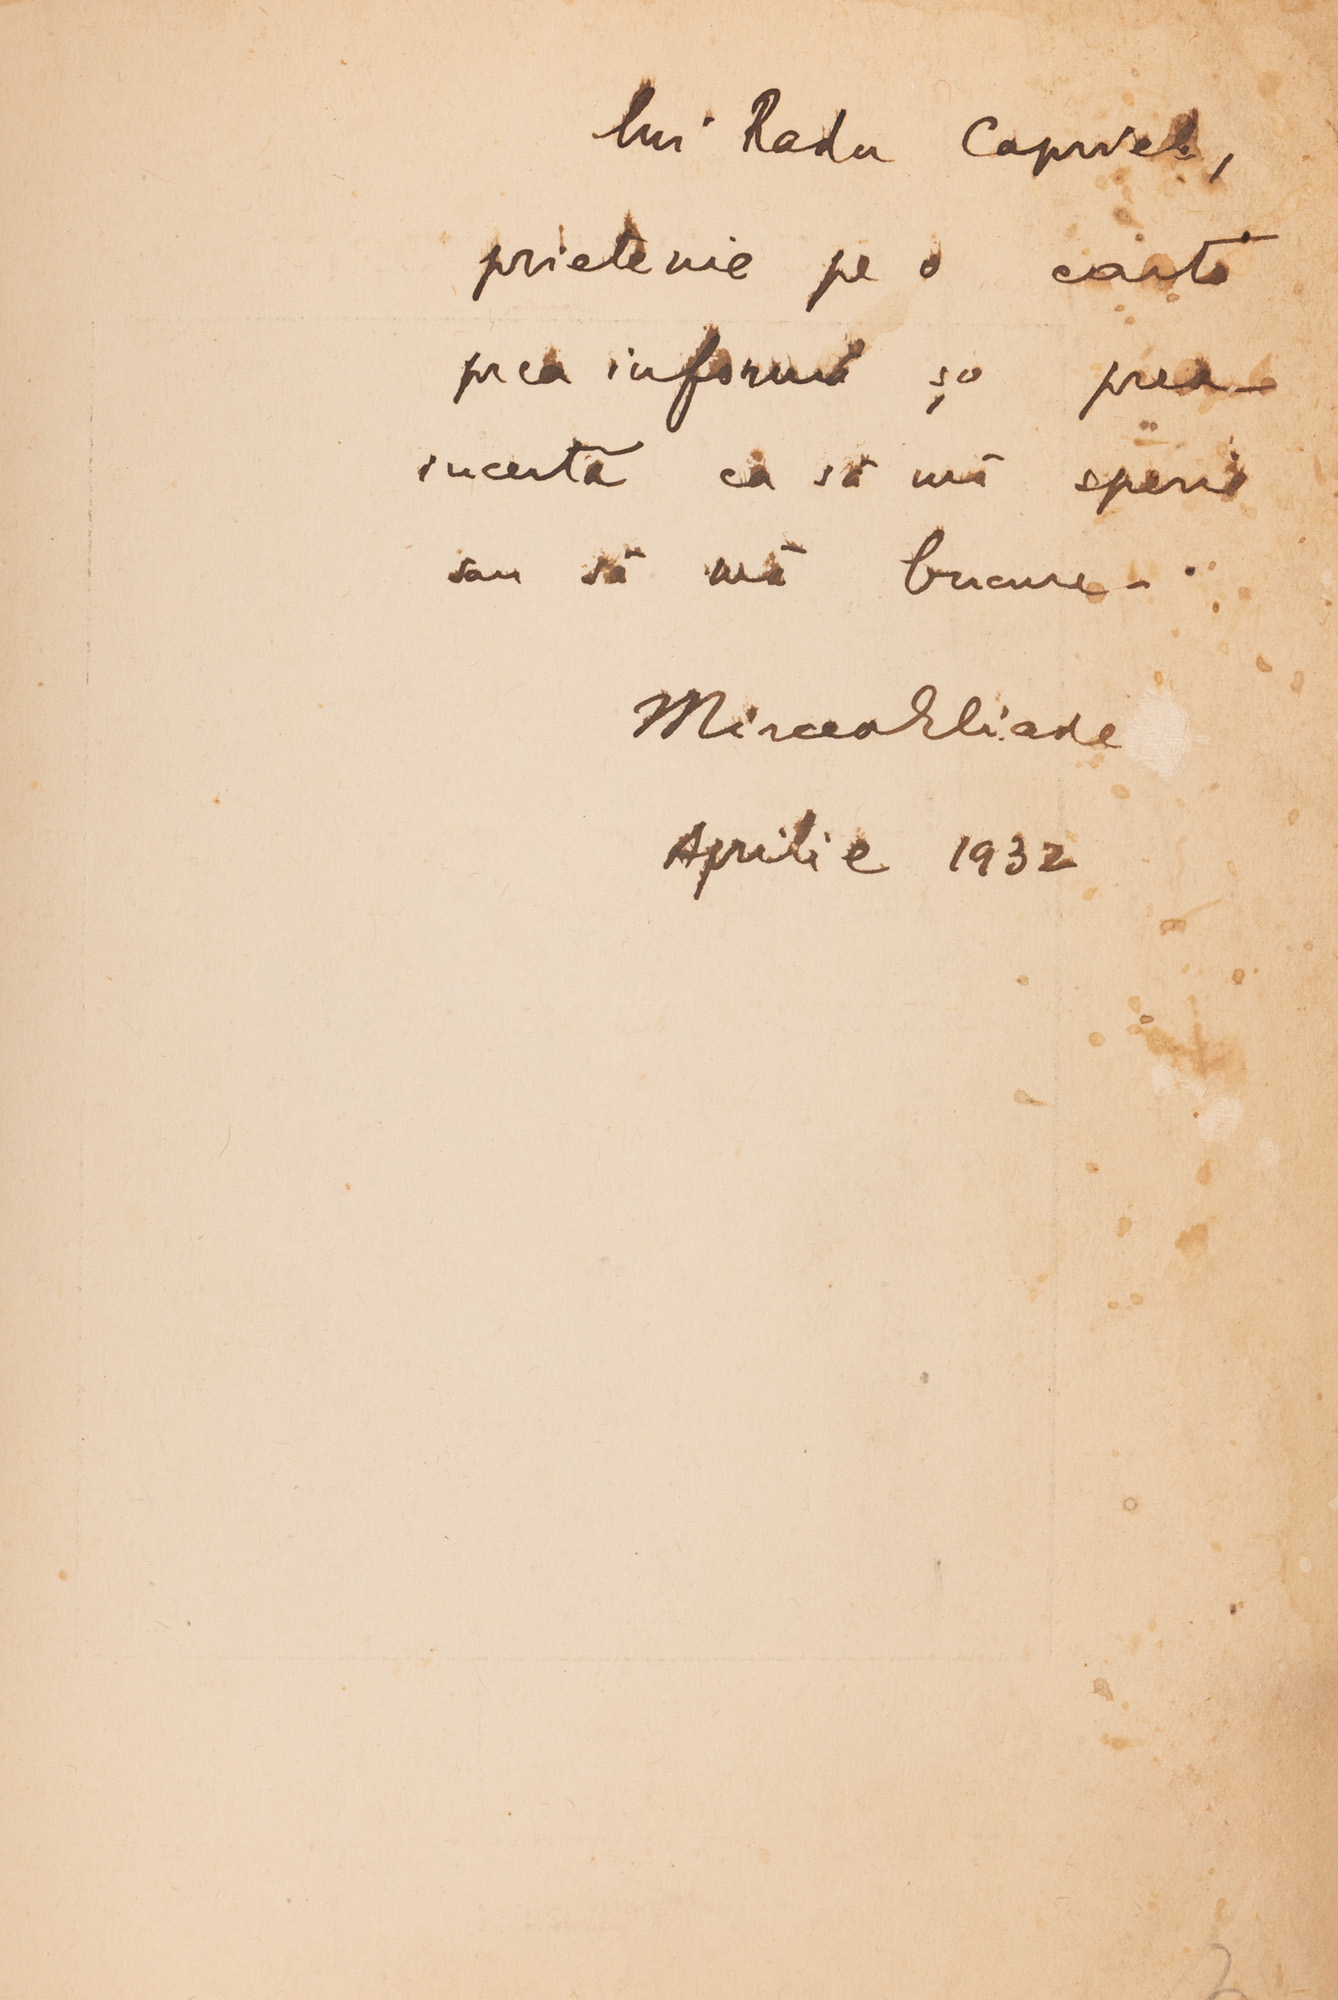 lui Radu Capriel,
prietenie pe o carte
prea informă și prea
incertă ca să mă sperie
sau să mă bucure-.
Mircea Eliade
Aprilie 1932